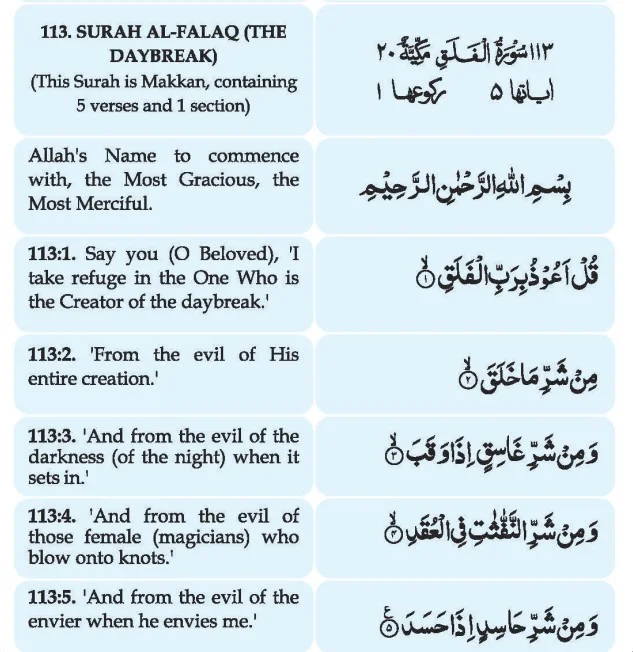 113. SURAH AL-FALAQ (THE
DAYBREAK)
(This Surah is Makkan, containing
5 verses and 1 section)
١١٣ سُوْرَةُ الْفَلَقِ مَكِّيَّةٌ ٢٠
اٰیاتها ۵ رکوعها ١
Allah's Name to commence
with, the Most Gracious, the
Most Merciful.
بِسْمِ اللّٰهِ الرَّحْمٰنِ الرَّحِيْمِ
113:1. Say you (O Beloved), 'I
take refuge in the One Who is
the Creator of the daybreak.'
قُلْ اَعُوْذُ بِرَبِّ الْفَلَقِ ۙ﴿۱﴾
113:2. 'From the evil of His
entire creation.'
مِنْ شَرِّ مَا خَلَقَ ۙ﴿۲﴾
113:3. 'And from the evil of the
darkness (of the night) when it
sets in.'
وَ مِنْ شَرِّ غَاسِقٍ اِذَا وَقَبَ ۙ﴿۳﴾
113:4. 'And from the evil of
those female (magicians) who
blow onto knots.'
وَ مِنْ شَرِّ النَّفّٰثٰتِ فِی الْعُقَدِ ۙ﴿۴﴾
113:5. 'And from the evil of the
envier when he envies me.'
وَ مِنْ شَرِّ حَاسِدٍ اِذَا حَسَدَ ﴿۵﴾ ع